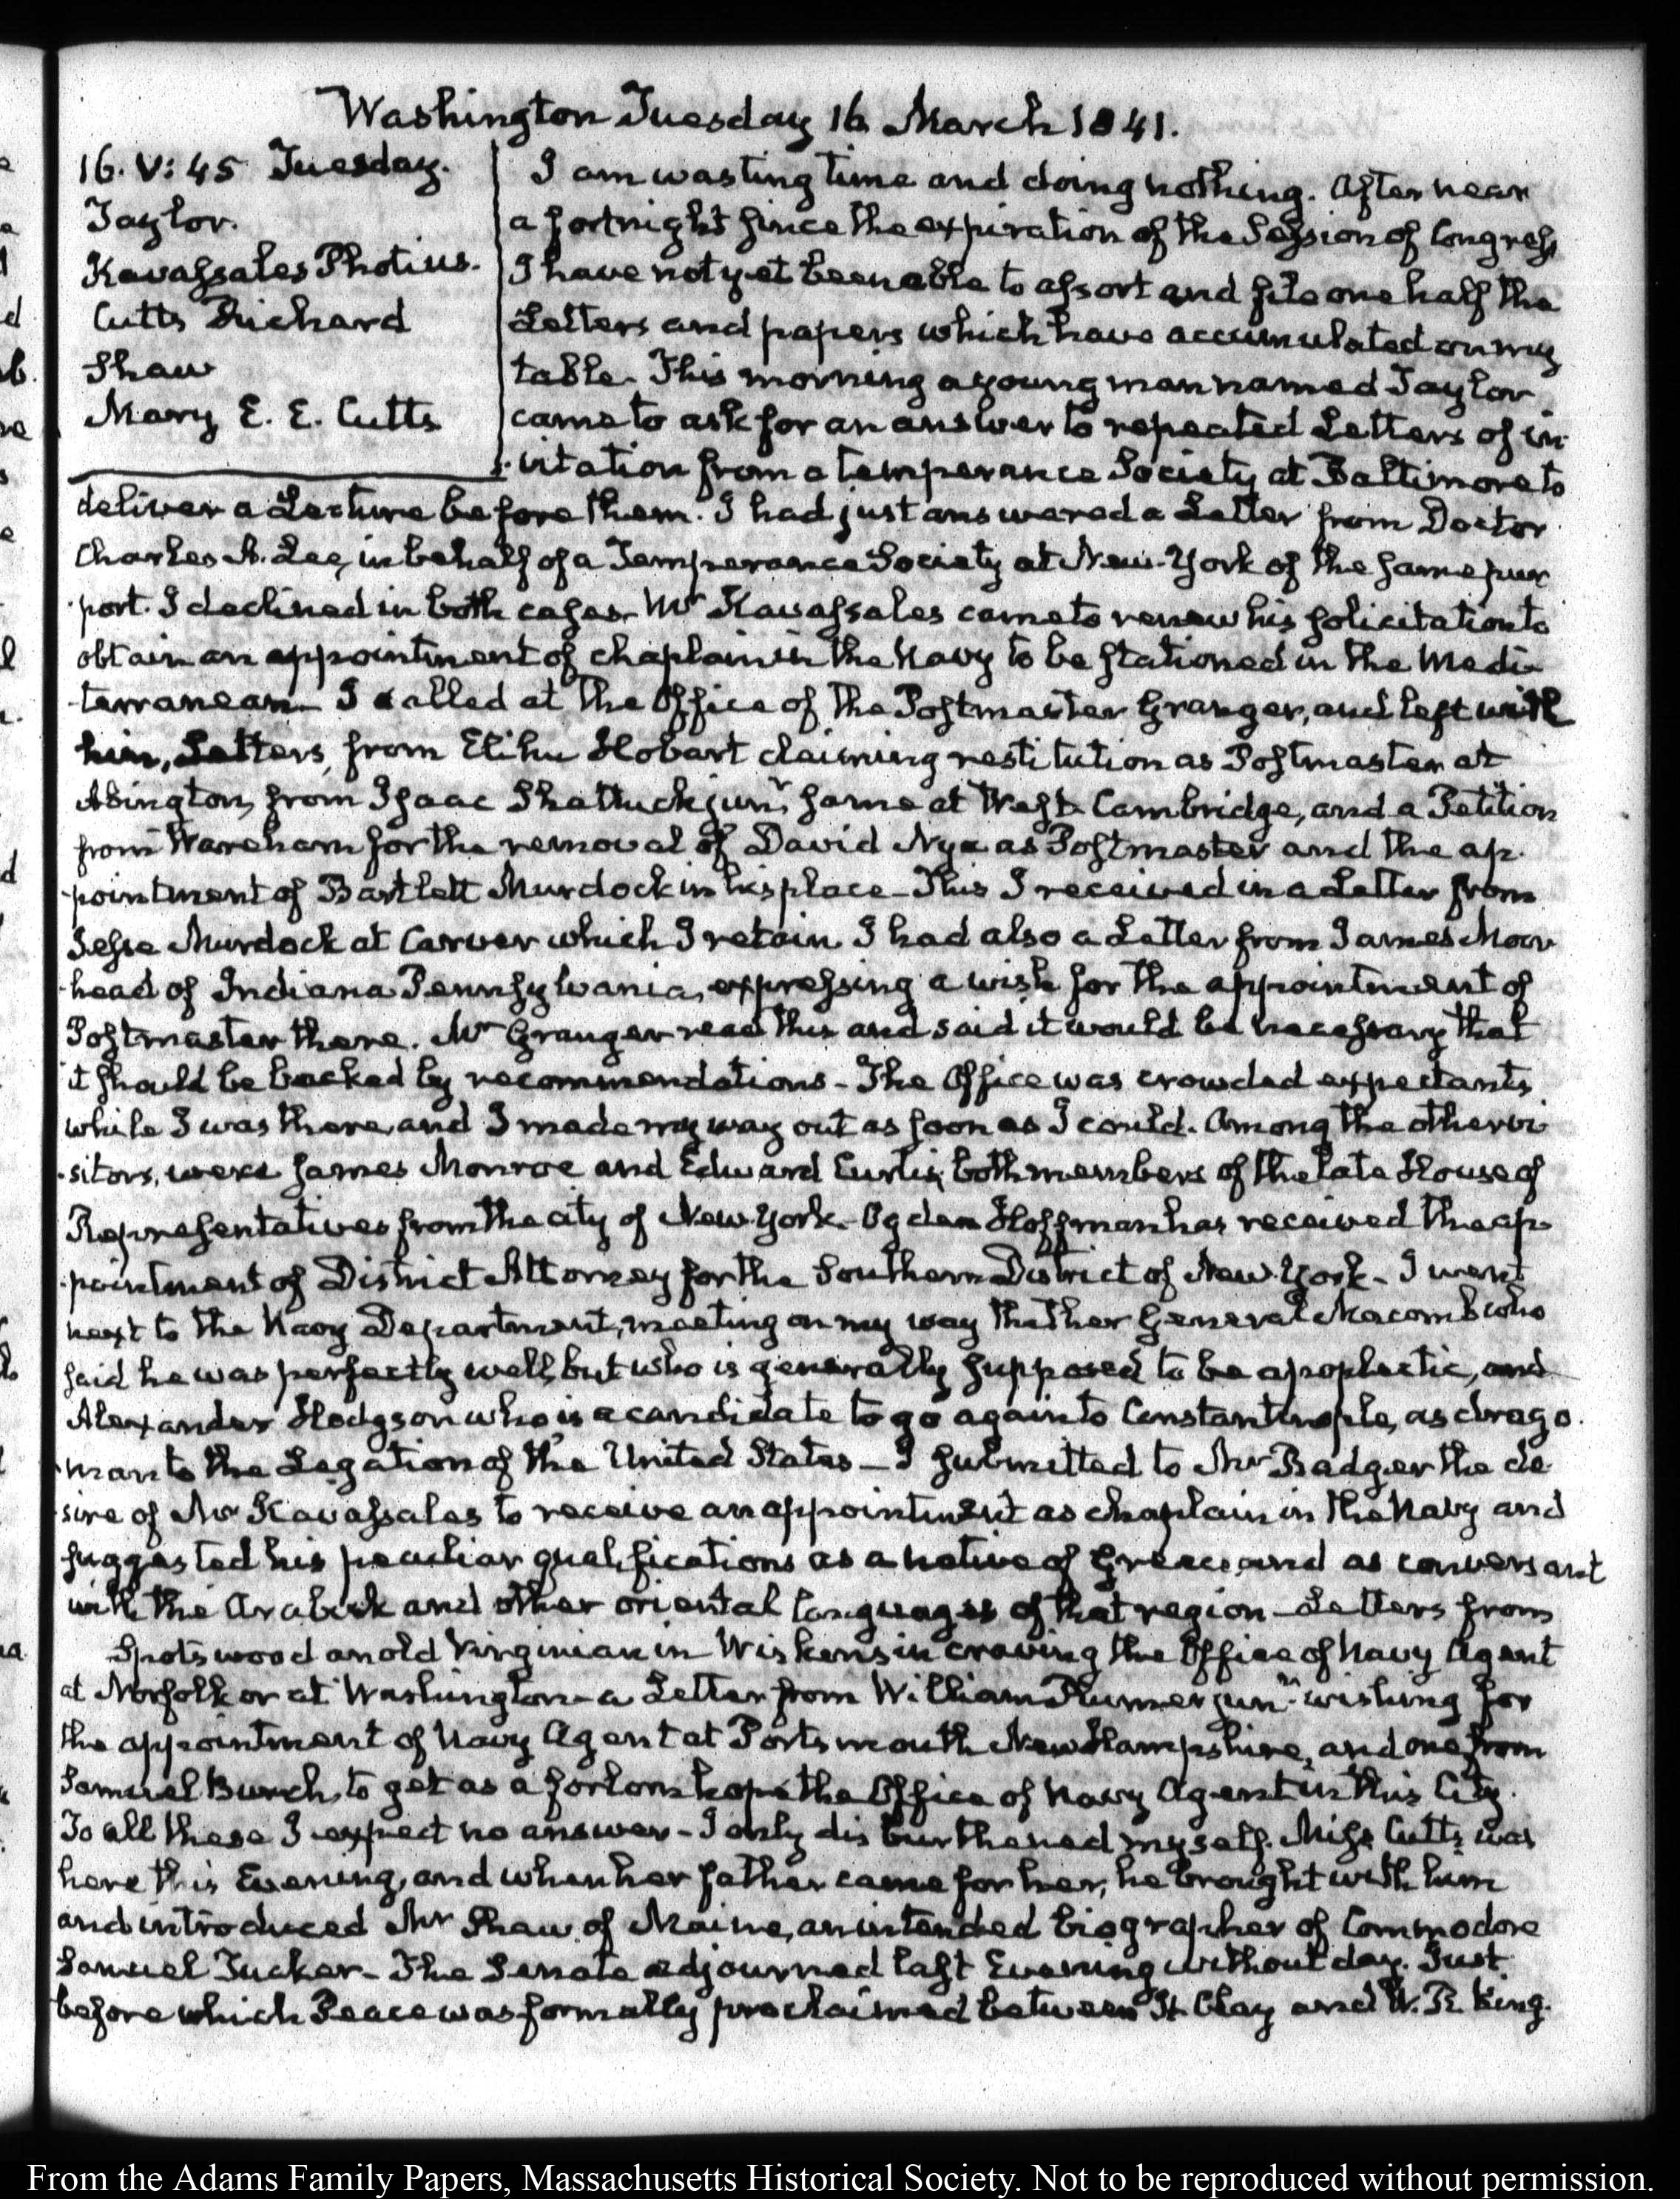 Washington Tuesday 16 March 1841.
16. V: 45 Tuesday.
Taylor.
Kavassales Photius.
Cutts Richard
Shaw
Mary E. E. Cutts
I am wasting time and doing nothing. After near
a fortnight since the expiration of the Session of Congress,
I have not yet been able to assort and file one half the
Letters and papers which have accumulated on my
table. This morning a young man named Taylor
came to ask for an answer to repeated Letters of in-
-vitation from a temperance Society at Baltimore to
deliver a Lecture before them. I had just answered a Letter from Doctor
Charles A. Lee, in behalf of a Temperance Society at New-York of the same pur
-port. I declined in both cases. Mr Kavassales came to renew his solicitation to
obtain an appointment of chaplain in the Navy to be stationed in the Medi-
-terranean— I called at the Office of the Postmaster Granger, and left with
him, Letters, from Elihu Hobart claiming restitution as Postmaster at
Abington, from Isaac Shattuck junr. same at West-Cambridge, and a Petition
from Wareham for the removal of David Nye as Postmaster and the ap-
-pointment of Bartlett Murdock in his place— This I received in a Letter from
Jesse Murdock at Carver which I retain. I had also a Letter from James Moor
-head of Indiana Pennsylvania, expressing a wish for the appointment of
Postmaster there. Mr Granger read this and said it would be necessary that
it should be backed by recommendations— The Office was crowded expectants
while I was there, and I made my way out as soon as I could. Among the other vi
-sitors, were James Monroe and Edward Curtis, both members of the late House of
Representatives from the city of New-York— Ogden Hoffman has received the ap-
-pointment of District Attorney for the Southern District of New-York— I went
next to the Navy Department, meeting on my way thither General Macomb who
said he was perfectly well, but who is generally supposed to be apoplectic, and
Alexander Hodgson who is a candidate to go again to Constantinople, as drago-
-man to the Legation of the United States— I submitted to Mr Badger the de
-sire of Mr Kavassales to receive an appointment as chaplain in the Navy and
suggested his peculiar qualifications as a native of Greece and as conversant
with the Arabick and other oriental languages of that region— Letters from
Spotswood an old Virginian in Wiskonsin craving the Office of Navy Agent
at Norfolk or at Washington— a Letter from William Plumer junr. wishing for
the appointment of Navy Agent at Portsmouth New Hampshire, and one from
Samuel Burch, to get as a forlorn hope the Office of Navy Agent in this City.
To all these I expect no answer— I only disburthened myself. Miss Cutts was
here this Evening, and when her father came for her, he brought with him
and introduced Mr Shaw of Maine, an intended biographer of Commodore
Samuel Tucker— The Senate adjourned last Evening without day. Just
before which Peace was formally proclaimed between H. Clay and W. R. King.
From the Adams Family Papers, Massachusetts Historical Society. Not to be reproduced without permission.